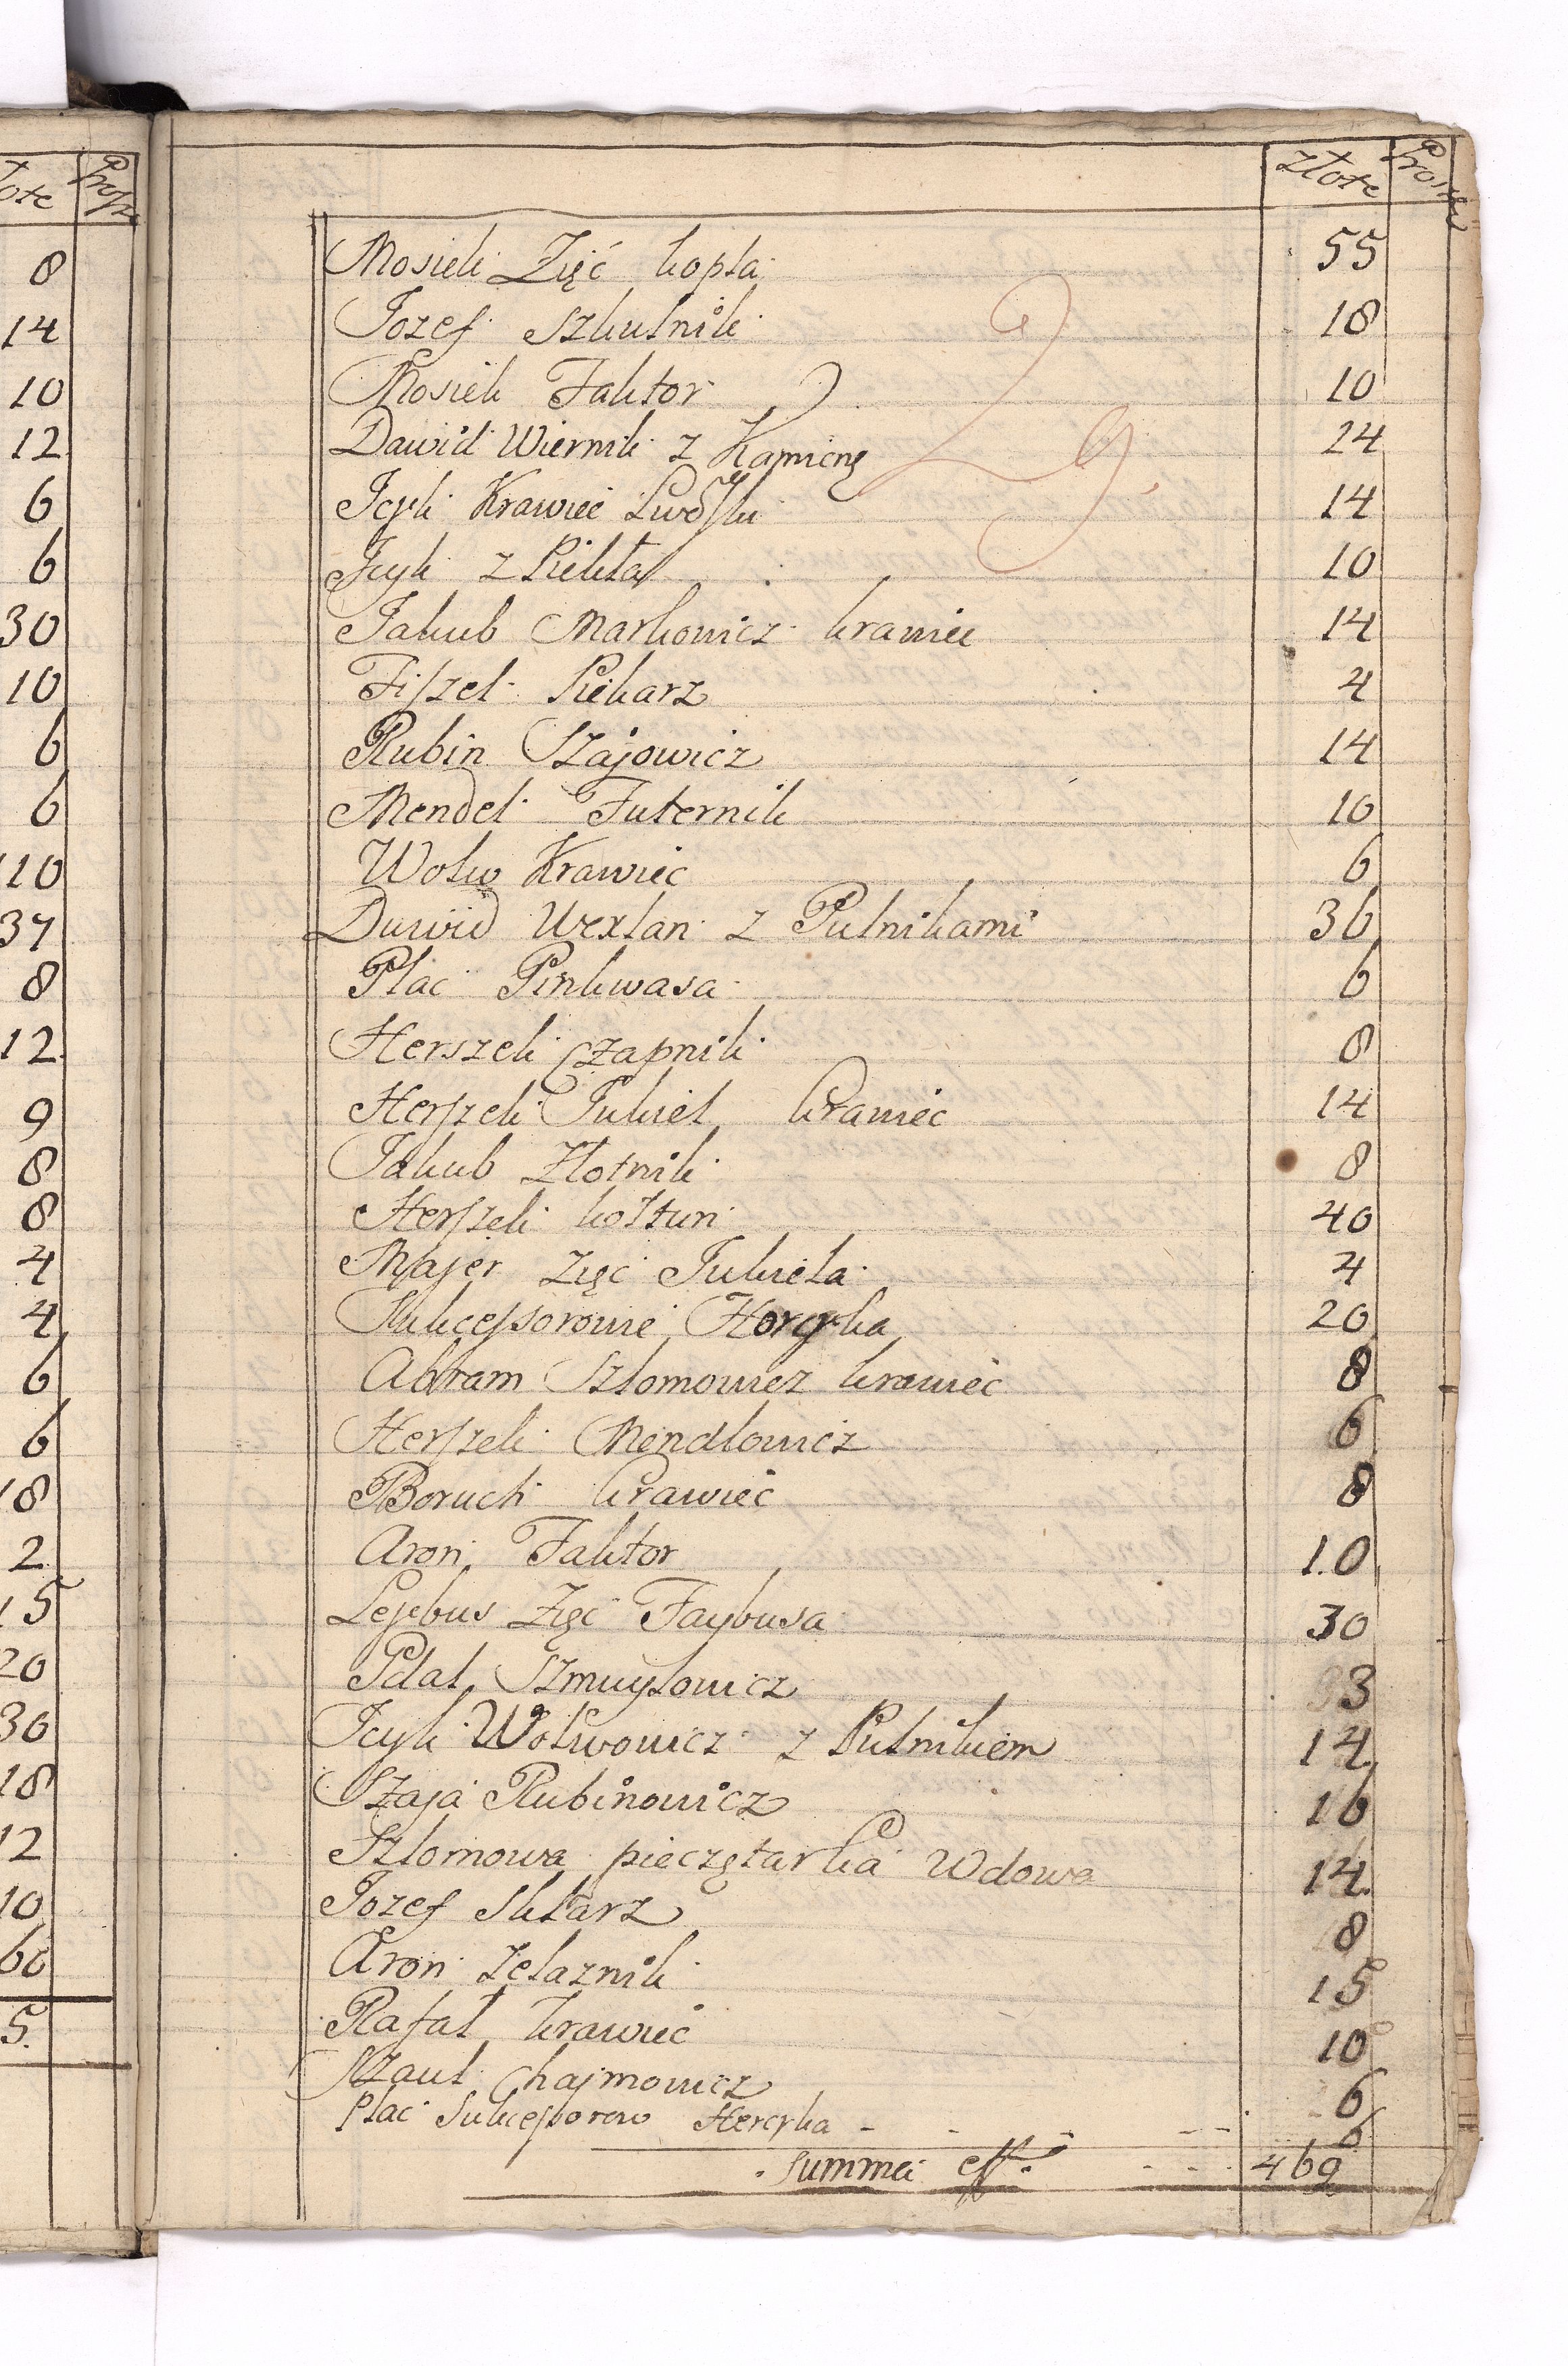 ote Grosz
8
14
10
12
6
6
30
10
6
6
110
37
8
12
9
8
8
4
4
6
6
18
2
15
20
30
18
12
10
60
5.
złote Groszy
Mosiek Zięć kopla 55
Jozef Szkutnik 18
Mosiek Faktor 10
Dawid Wiernik z Kamienę 24
Icyk Krawiec 14
Icyk z Piekła 10
Jakub Markowicz krawiec 14
Fiszel Piekarz 4
Rubin Szajowicz 14
Mendel Futernik 10
Wolw Krawiec 6
Dawid Wexlan z Putnikami 36
Plac Pinkwasa 6
Herszek Czapnik 8
Herszek Jukiel krawiec 14
Jakub Złotnik 8
Herszek kołtun 40
Majer Zięc Jukiela 4
Sukcessorowie Horcyka 20
Abram Szlomowicz krawiec 8
Herszek Mendlowicz 6
Boruch krawiec 8
Aron Faktor 10
Lejbus Zięć Faybusa 30
Idal Szmuylowicz 3
Icyk Wolwowicz z Putnikiem 14
Szaja Rubinowicz 16
Szlomowa pieczętarka Wdowa 14
Jozef Sklarz 8
Aron Zelaznik 15
Rafał krawiec 10
Szaul Chajmowicz 6
Plac Sukcessorow Hercyka - - - 6
Summa - - - 469
29.